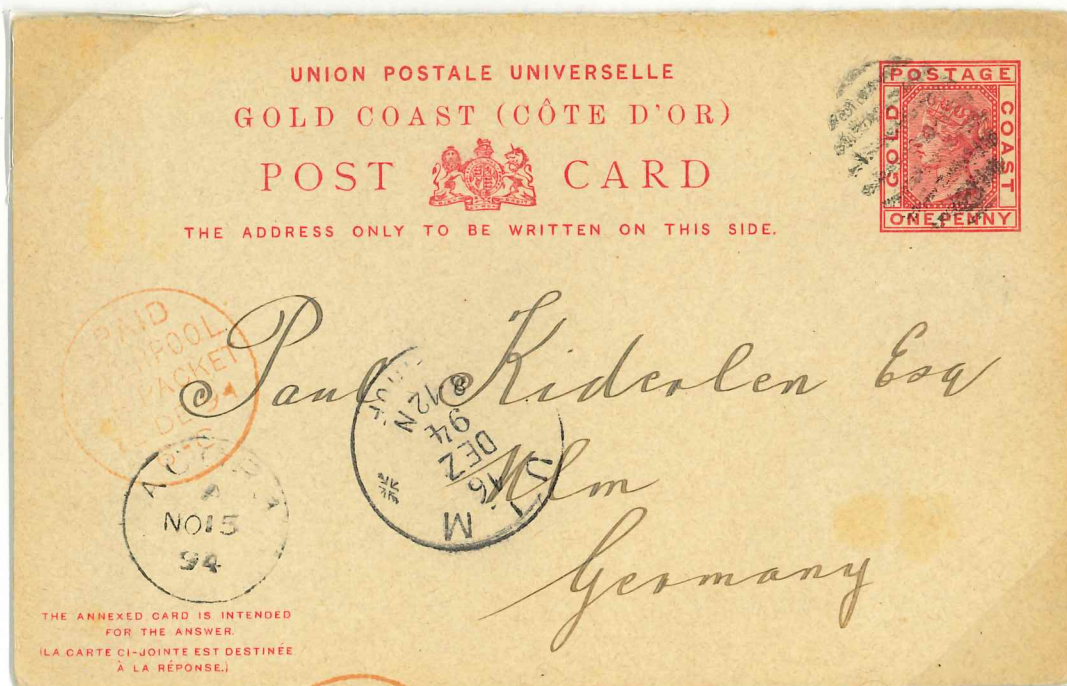 UNION POSTALE UNIVERSELLE
GOLD COAST (CÔTE D'OR)
POST CARD
THE ADDRESS ONLY TO BE WRITTEN ON THIS SIDE.
POSTAGE
GOLD
COAST
ONE PENNY
PAID
PACKET
DE 94
Paul Kiderlen Esq
Ulm
Germany
ULM
16
DEZ
94
8 12 N
ACCRA
NO 15
94
THE ANNEXED CARD IS INTENDED
FOR THE ANSWER.
(LA CARTE CI-JOINTE EST DESTINÉE
À LA RÉPONSE.)